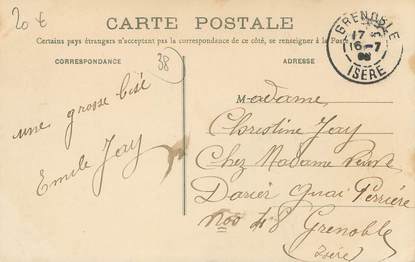 20 €
CARTE POSTALE
Certains pays étrangers n'acceptant pas la correspondance de ce côté, se renseigner à la Poste
CORRESPONDANCE
ADRESSE
38
GRENOBLE
17
16-7
ISÈRE
une grosse bise
Emile Jay
Madame
Christine Jay
Chez Madame
Darier Quai Perrière
48 Grenoble
Isère